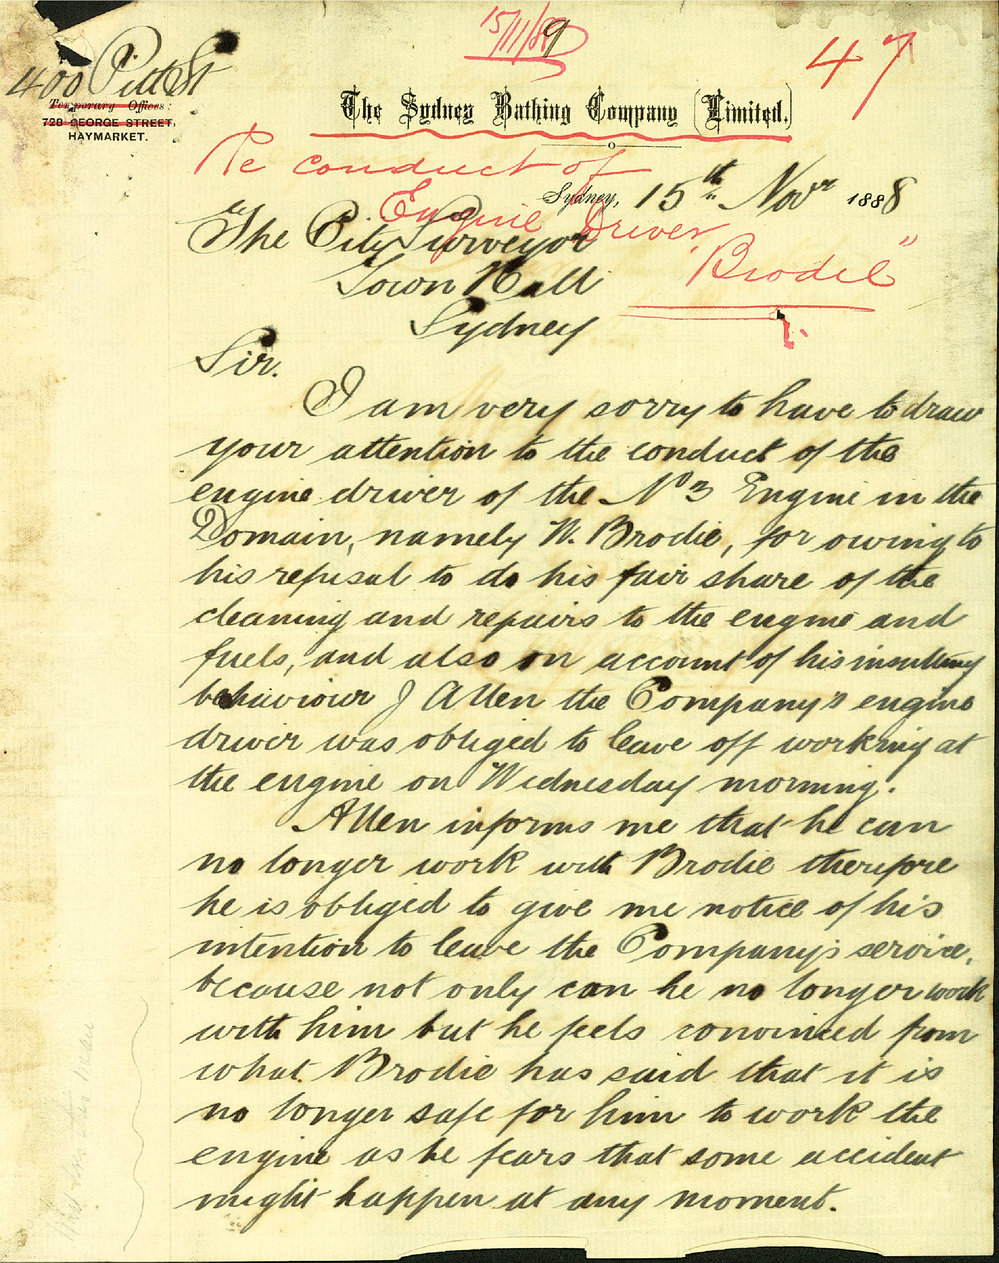 15/11/89
47
400 Pitt St
Temporary Offices:
728 GEORGE STREET,
HAYMARKET.
The Sydney Bathing Company (Limited.)
Re conduct of
Engine Driver
"Brodie"
Sydney, 15th Novr 1888
The City Surveyor
Town Hall
Sydney
Sir.
I am very sorry to have to draw
your attention to the conduct of the
engine driver of the No 3 Engine in the
Domain, namely W. Brodie, for owing to
his refusal to do his fair share of the
cleaning and repairs to the engine and
fuels, and also on account of his insulting
behaviour J Allen the Company's engine
driver was obliged to leave off working at
the engine on Wednesday morning.
Allen informs me that he can
no longer work with Brodie therefore
he is obliged to give me notice of his
intention to leave the Company's service,
because not only can he no longer work
with him but he feels convinced from
what Brodie has said that it is
no longer safe for him to work the
engine as he fears that some accident
might happen at any moment.